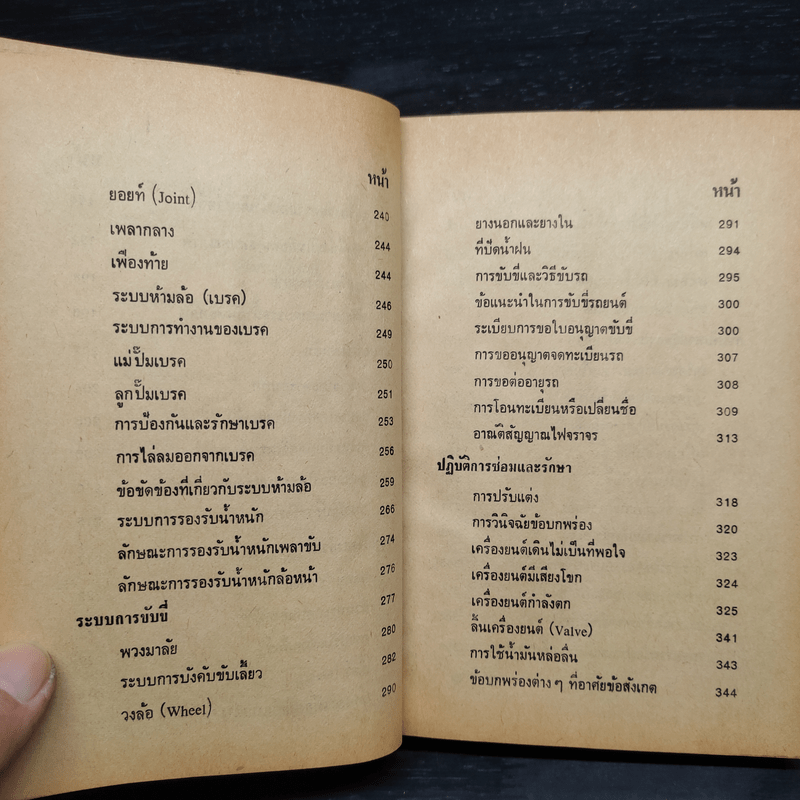 หน้า
ยอยท์ (Joint) 240
เพลากลาง 244
เฟืองท้าย 244
ระบบห้ามล้อ (เบรค) 246
ระบบการทำงานของเบรค 249
แม่ปั๊มเบรค 250
ลูกปั๊มเบรค 251
การป้องกันและรักษาเบรค 253
การไล่ลมออกจากเบรค 256
ข้อขัดข้องที่เกี่ยวกับระบบห้ามล้อ 259
ระบบการรองรับน้ำหนัก 266
ลักษณะการรองรับน้ำหนักเพลาขับ 274
ลักษณะการรองรับน้ำหนักล้อหน้า 276
ระบบการขับขี่ 277
พวงมาลัย 280
ระบบการบังคับขับเลี้ยว 282
วงล้อ (Wheel) 290
หน้า
ยางนอกและยางใน 291
ที่ปัดน้ำฝน 294
การขับขี่และวิธีขับรถ 295
ข้อแนะนำในการขับขี่รถยนต์ 300
ระเบียบการขอใบอนุญาตขับขี่ 300
การขออนุญาตจดทะเบียนรถ 307
การขอต่ออายุรถ 308
การโอนทะเบียนหรือเปลี่ยนชื่อ 309
อาณัติสัญญาณไฟจราจร 313
ปฏิบัติการซ่อมและรักษา
การปรับแต่ง 318
การวินิจฉัยข้อบกพร่อง 320
เครื่องยนต์เดินไม่เป็นที่พอใจ 323
เครื่องยนต์มีเสียงโขก 324
เครื่องยนต์กำลังตก 325
ลิ้นเครื่องยนต์ (Valve) 341
การใช้น้ำมันหล่อลื่น 343
ข้อบกพร่องต่าง ๆ ที่อาศัยข้อสังเกต 344